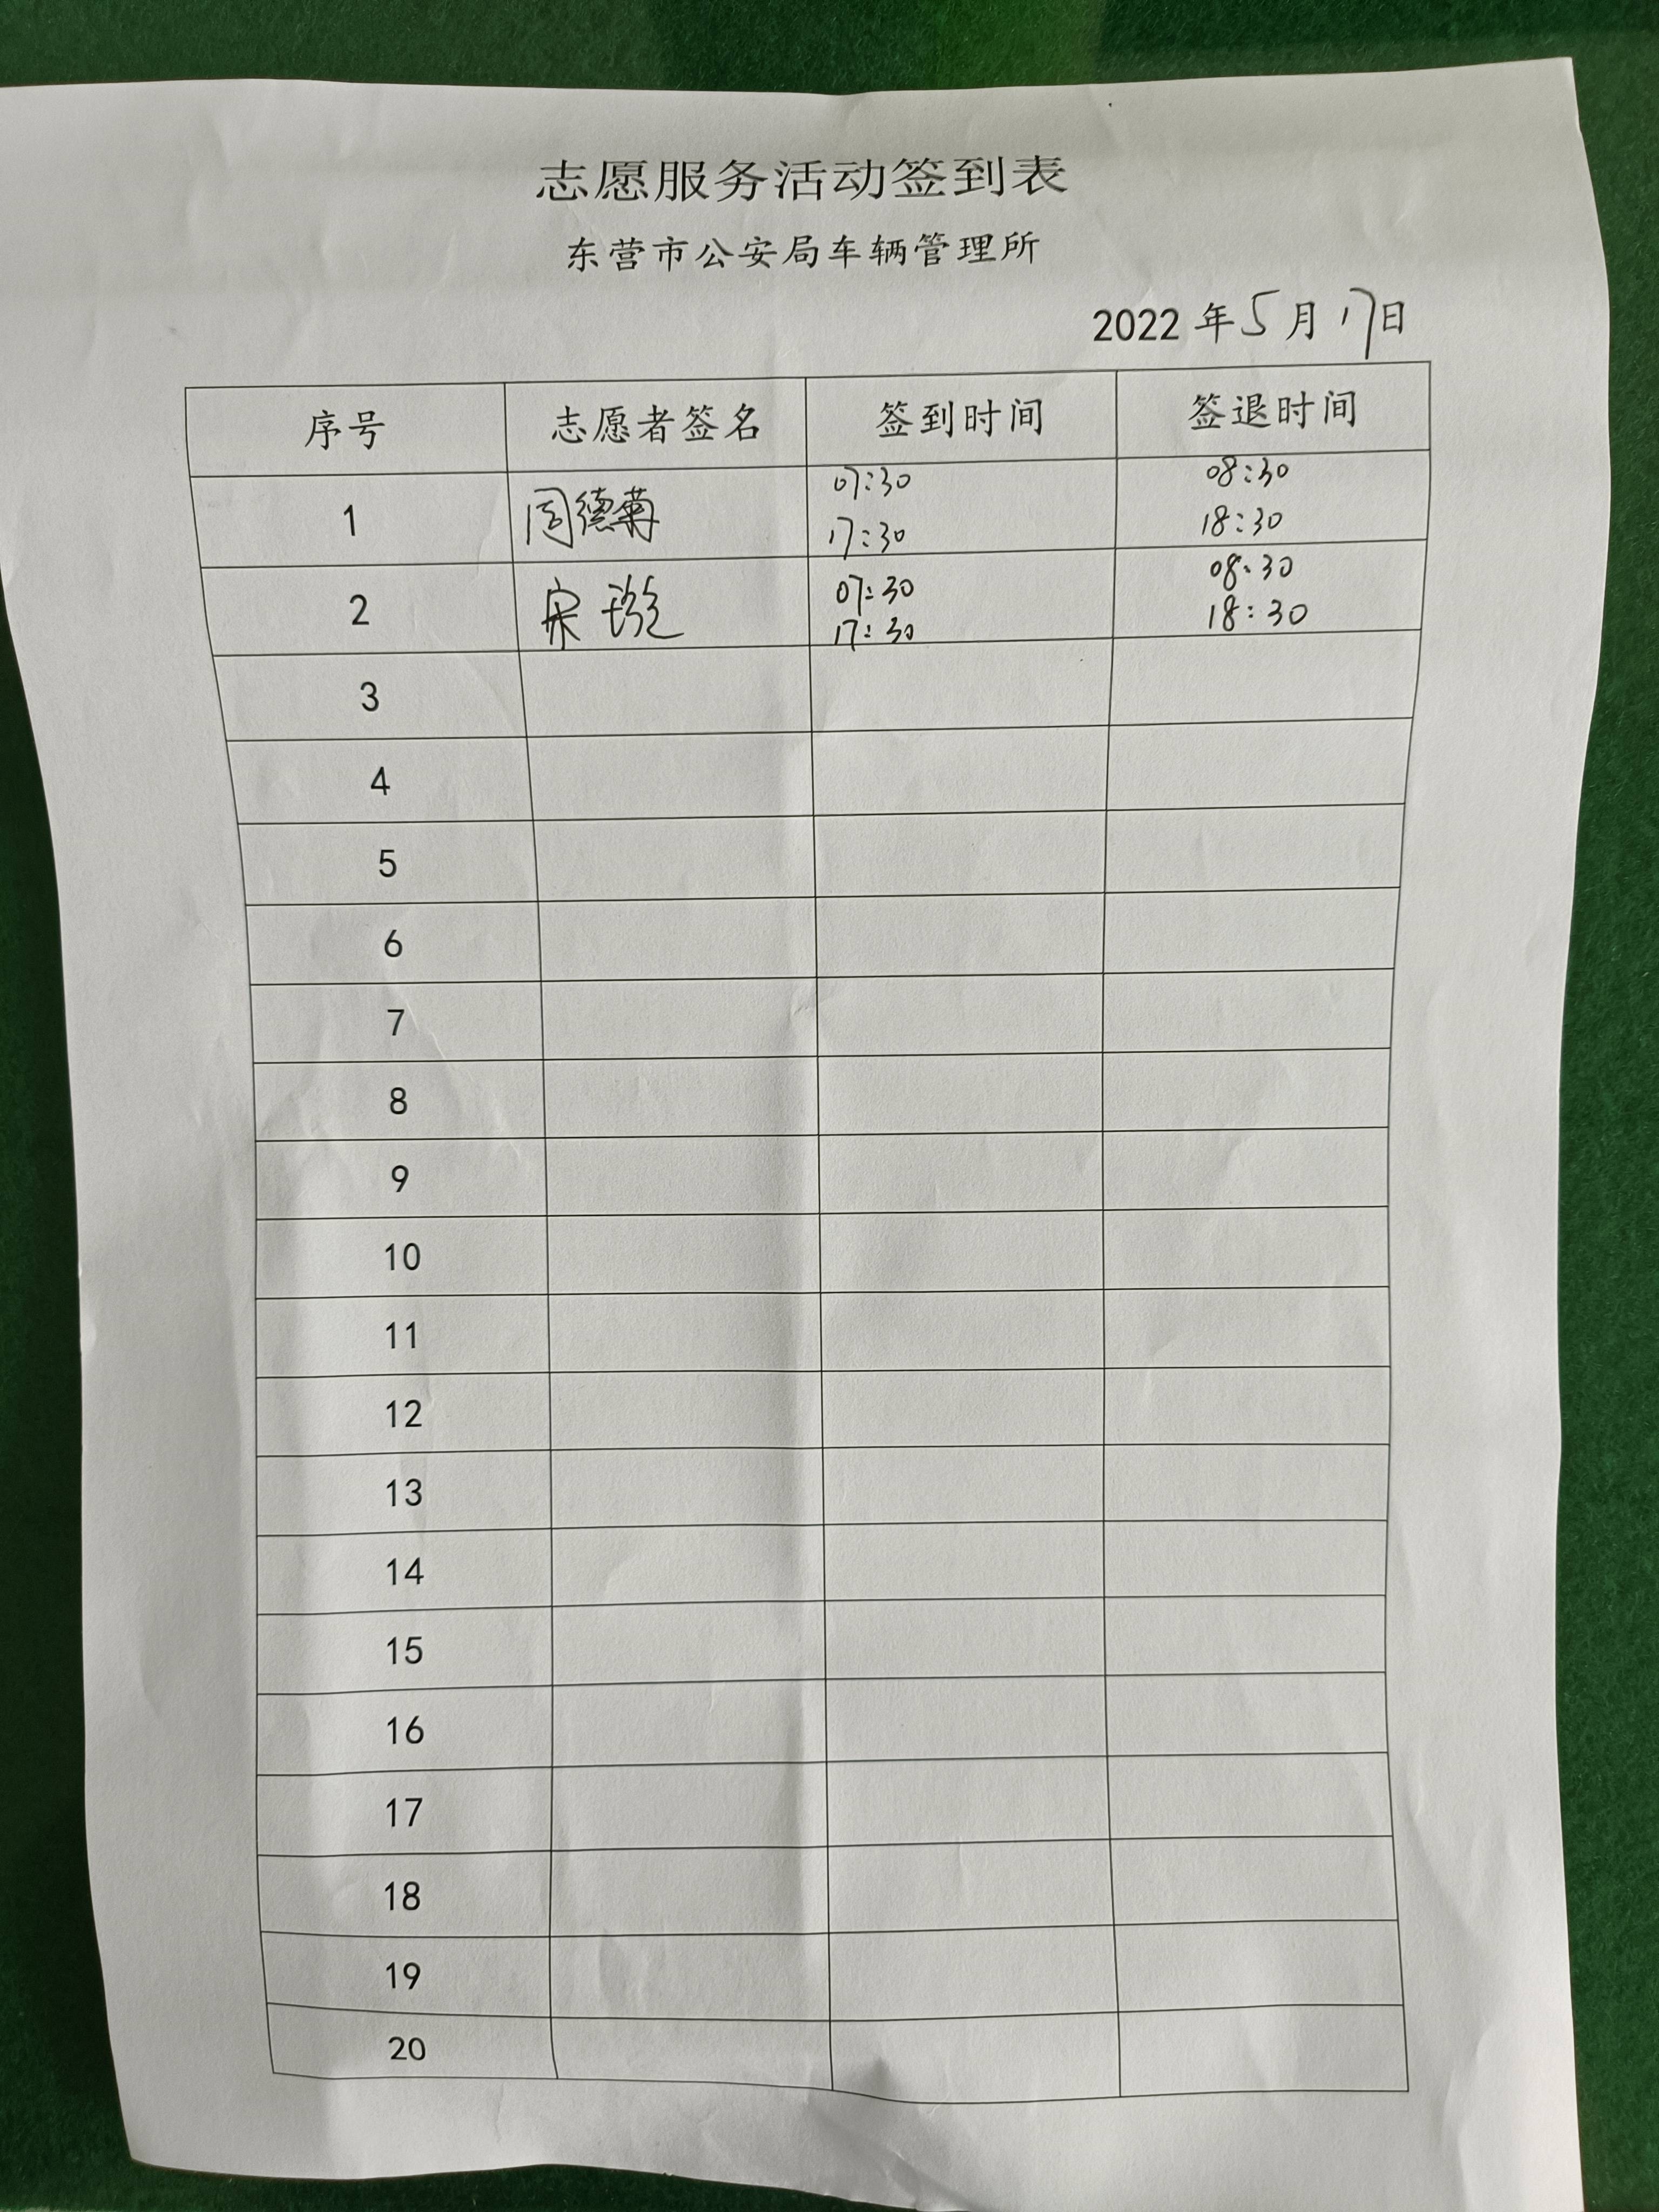 志愿服务活动签到表
东营市公安局车辆管理所
2022年5月17日
序号 志愿者签名 签到时间 签退时间
1 周德菊 07:30 08:30
17:30 18:30
2 宋 07:30 08:30
17:30 18:30
3
4
5
6
7
8
9
10
11
12
13
14
15
16
17
18
19
20